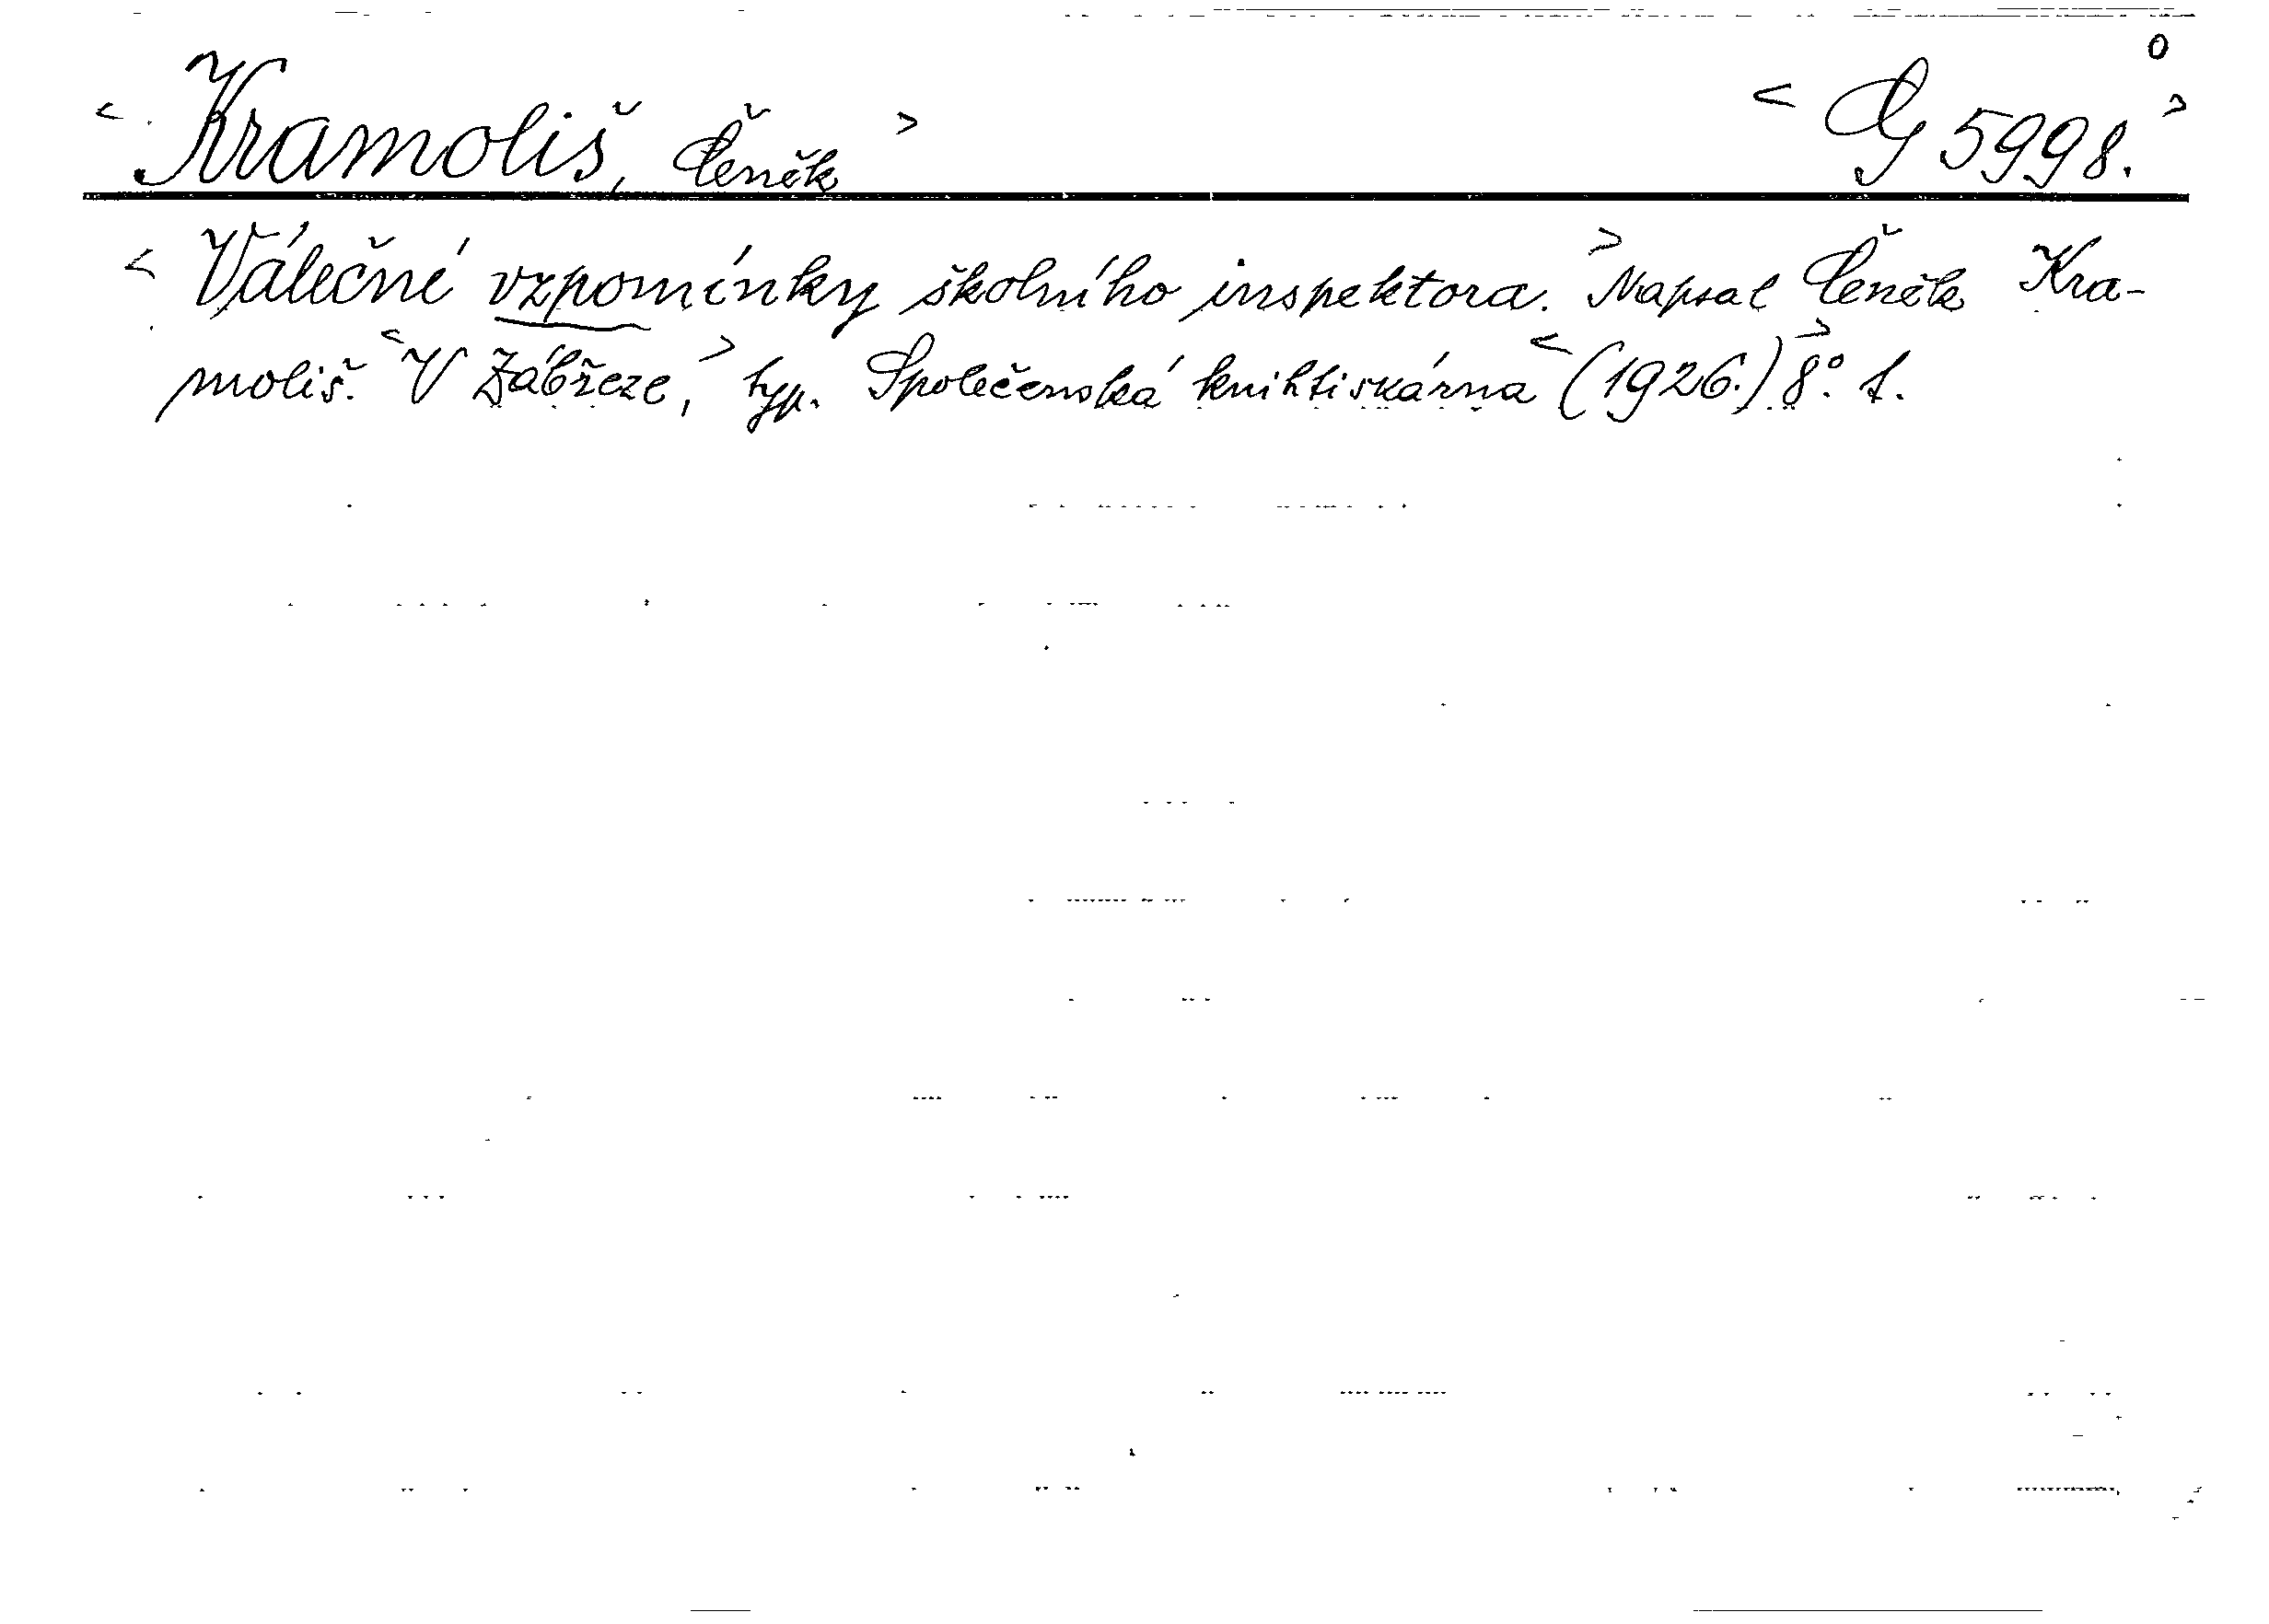 < Kramoliš, Čeněk > < G 5998. >
< Válečné vzpomínky školního inspektora. > Napsal Čeněk Kra-
moliš. < V Zábřeze, > typ. Společenská knihtiskárna < (1926.) > 8°. 1.